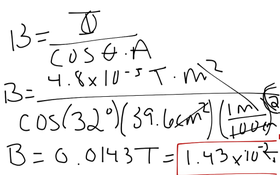 B = Φ / cosθ·A
B = 4.8x10⁻⁵ T·m² / cos(32°)(39.6cm²)(1m/100)²
B = 0.0143T = 1.43x10⁻²